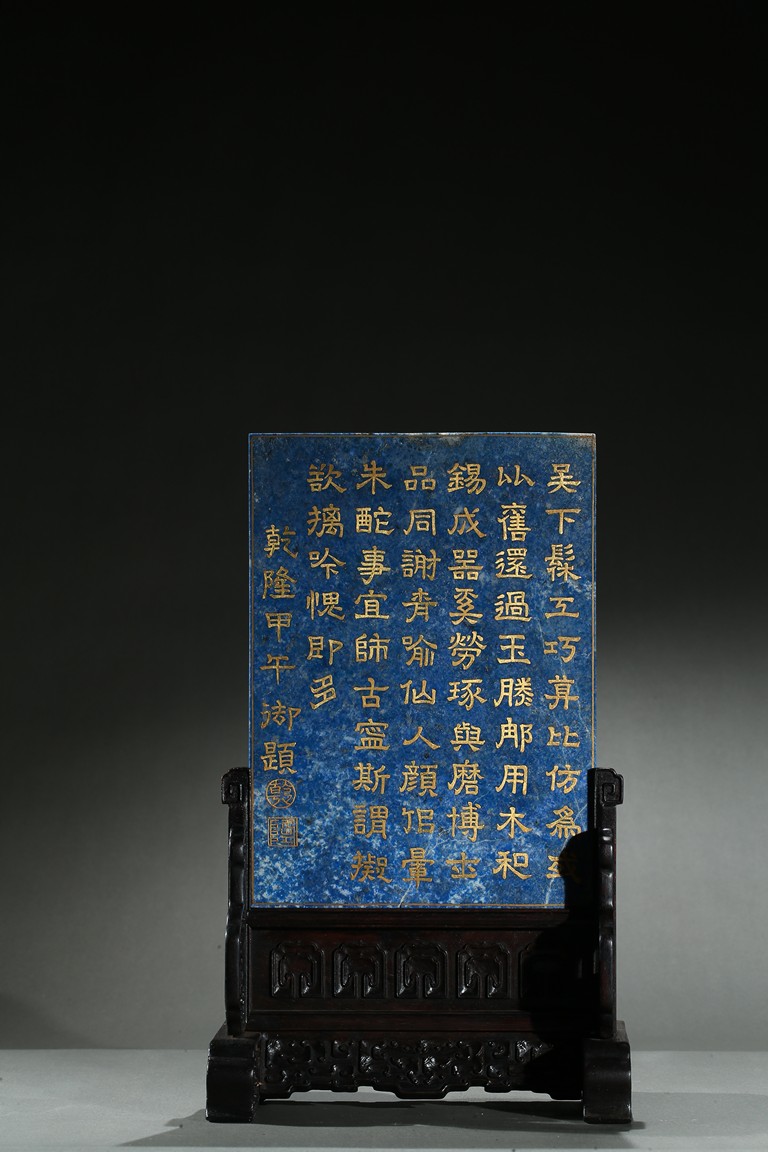 吳下髹工巧算比仿為或
以舊還過玉勝那用木和
錫成器奚勞琢與磨博士
品同謝青喻仙人顏佀暈
朱酡事宜師古寍斯謂擬
欲摛吟愧即多
乾隆甲午御題
乾
隆